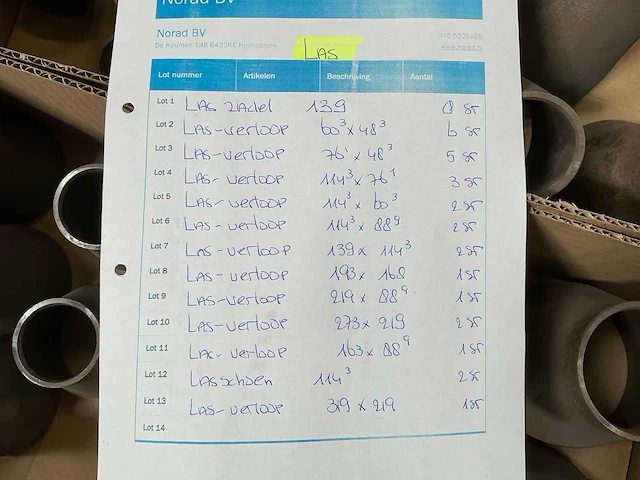 Norad BV
Norad BV
De Koumen 148 6433KE Hoensbroek
LAS
www.norad.nl
Lot nummer Artikelen Beschrijving Aantal
Lot 1 LAS zadel 139 8 ST
Lot 2 LAS-verloop 60³ x 48³ 6 ST
Lot 3 LAS-verloop 76¹ x 48³ 5 ST
Lot 4 LAS-verloop 114³ x 76¹ 3 ST
Lot 5 LAS-verloop 114³ x 60³ 2 ST
Lot 6 LAS-verloop 114³ x 88⁹ 2 ST
Lot 7 LAS-verloop 139 x 114³ 2 ST
Lot 8 LAS-verloop 193 x 168 1 ST
Lot 9 LAS-verloop 219 x 88⁹ 1 ST
Lot 10 LAS-verloop 273 x 219 2 ST
Lot 11 LAS-verloop 163 x 88⁹ 1 ST
Lot 12 LASschoen 114³ 2 ST
Lot 13 LAS-verloop 319 x 219 1 ST
Lot 14